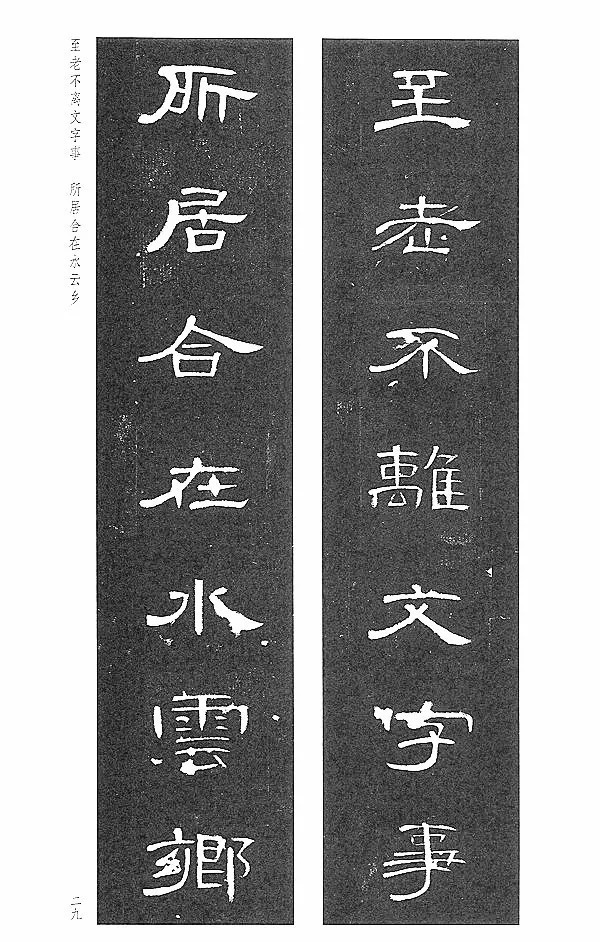 至老不離文字事
所居合在水雲鄉
至老不离文字事 所居合在水云乡
二九